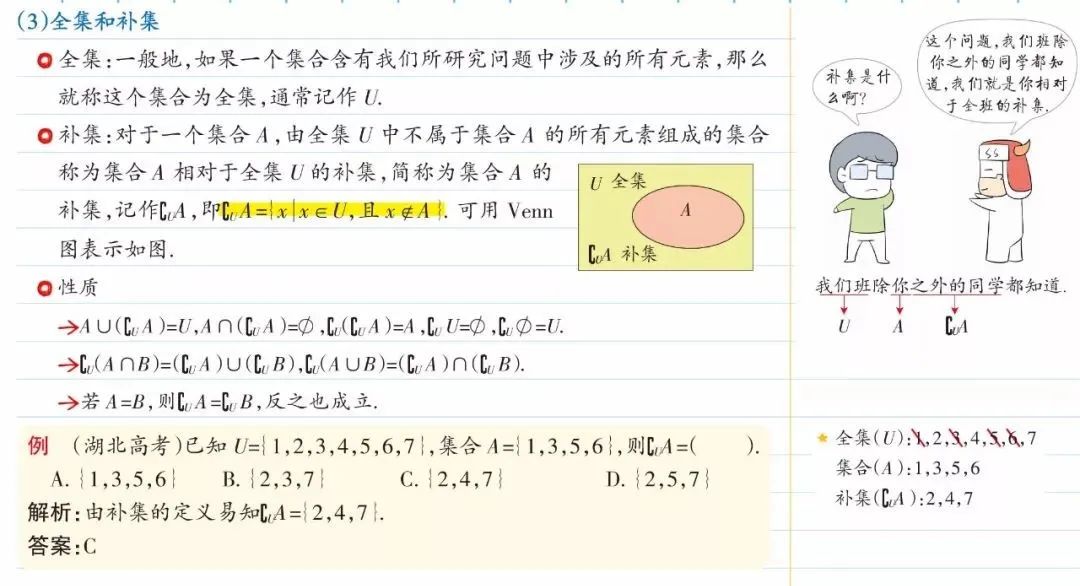 (3)全集和补集
全集:一般地,如果一个集合含有我们所研究问题中涉及的所有元素,那么
就称这个集合为全集,通常记作 U.
补集:对于一个集合 A,由全集 U 中不属于集合 A 的所有元素组成的集合
称为集合 A 相对于全集 U 的补集,简称为集合 A 的
补集,记作∁UA,即∁UA={x|x∈U,且 x∉A}. 可用 Venn
图表示如图.
U 全集
A
∁UA 补集
性质
→A∪(∁UA)=U,A∩(∁UA)=∅,∁U(∁UA)=A,∁UU=∅,∁U∅=U.
→∁U(A∩B)=(∁UA)∪(∁UB),∁U(A∪B)=(∁UA)∩(∁UB).
→若 A=B,则∁UA=∁UB,反之也成立.
例 (湖北高考)已知 U={1,2,3,4,5,6,7},集合 A={1,3,5,6},则∁UA=( ).
A. {1,3,5,6} B. {2,3,7} C. {2,4,7} D. {2,5,7}
解析:由补集的定义易知∁UA={2,4,7}.
答案:C
补集是什
么啊?
这个问题,我们班除
你之外的同学都知
道,我们就是你相对
于全班的补集.
我们班除你之外的同学都知道.
U A ∁UA
★ 全集(U):1,2,3,4,5,6,7
集合(A):1,3,5,6
补集(∁UA):2,4,7